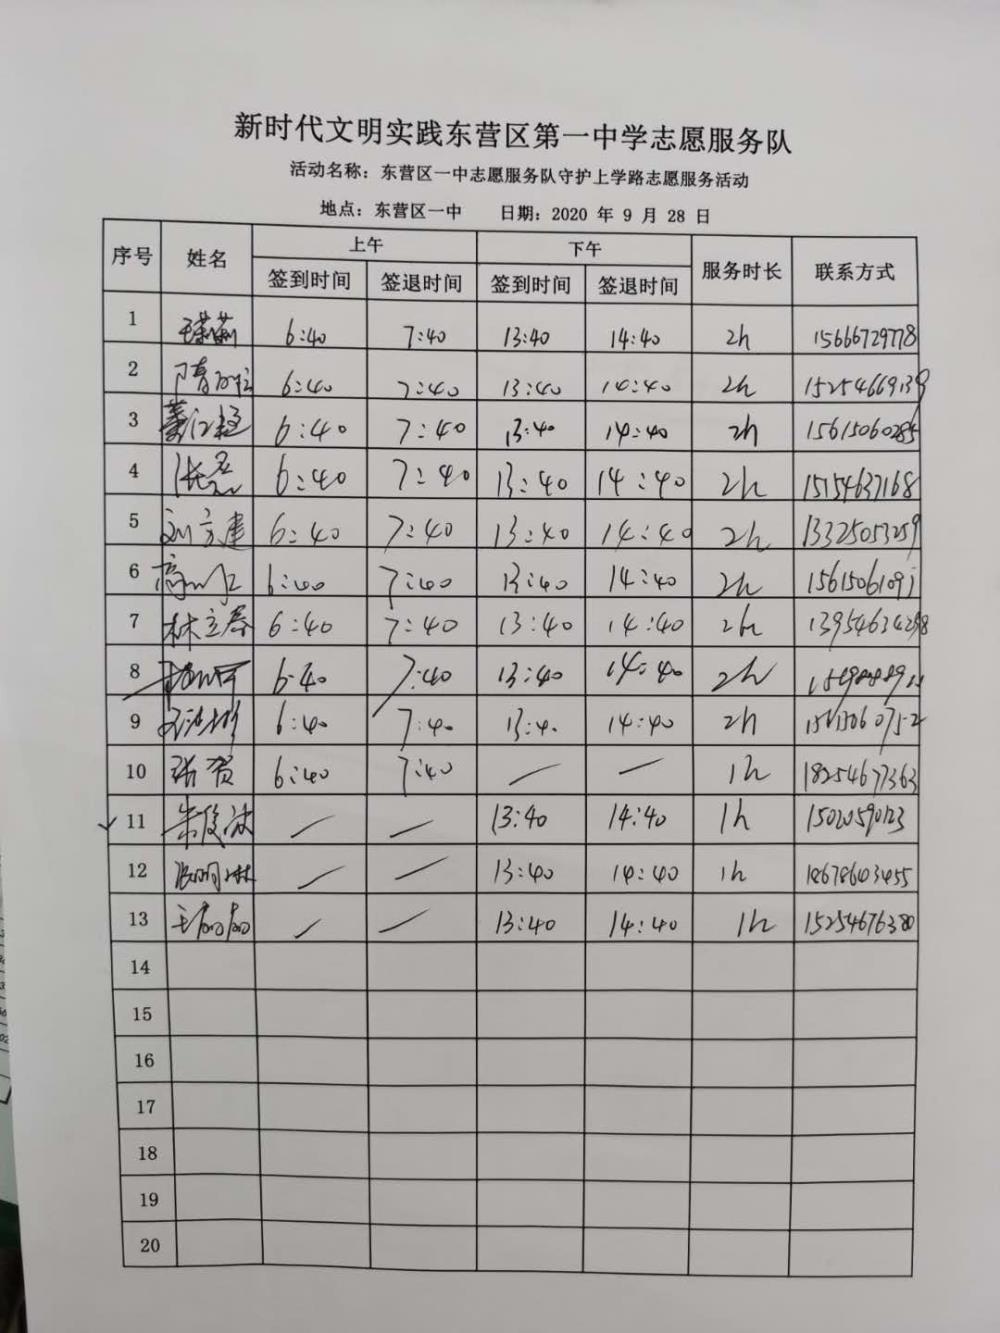 新时代文明实践东营区第一中学志愿服务队
活动名称：东营区一中志愿服务队守护上学路志愿服务活动
地点：东营区一中 日期：2020 年 9 月 28 日
序号 姓名 上午 下午 服务时长 联系方式
签到时间 签退时间 签到时间 签退时间
1 6:40 7:40 13:40 14:40 2h 15666729778
2 6:40 7:40 13:40 14:40 2h 15254669139
3 6:40 7:40 13:40 14:40 2h 15615060285
4 张磊 6:40 7:40 13:40 14:40 2h 15154637168
5 刘方建 6:40 7:40 13:40 14:40 2h 13325053259
6 6:40 7:40 13:40 14:40 2h
7 林立春 6:40 7:40 13:40 14:40 2h 13954634298
8 6:40 7:40 13:40 14:40 2h
9 6:40 7:40 13:40 14:40 2h
10 张贺 6:40 7:40 — — 1h 18254677363
11 朱俊波 — — 13:40 14:40 1h
12 张明琳 — — 13:40 14:40 1h 18678603455
13 — — 13:40 14:40 1h 15254676380
14
15
16
17
18
19
20